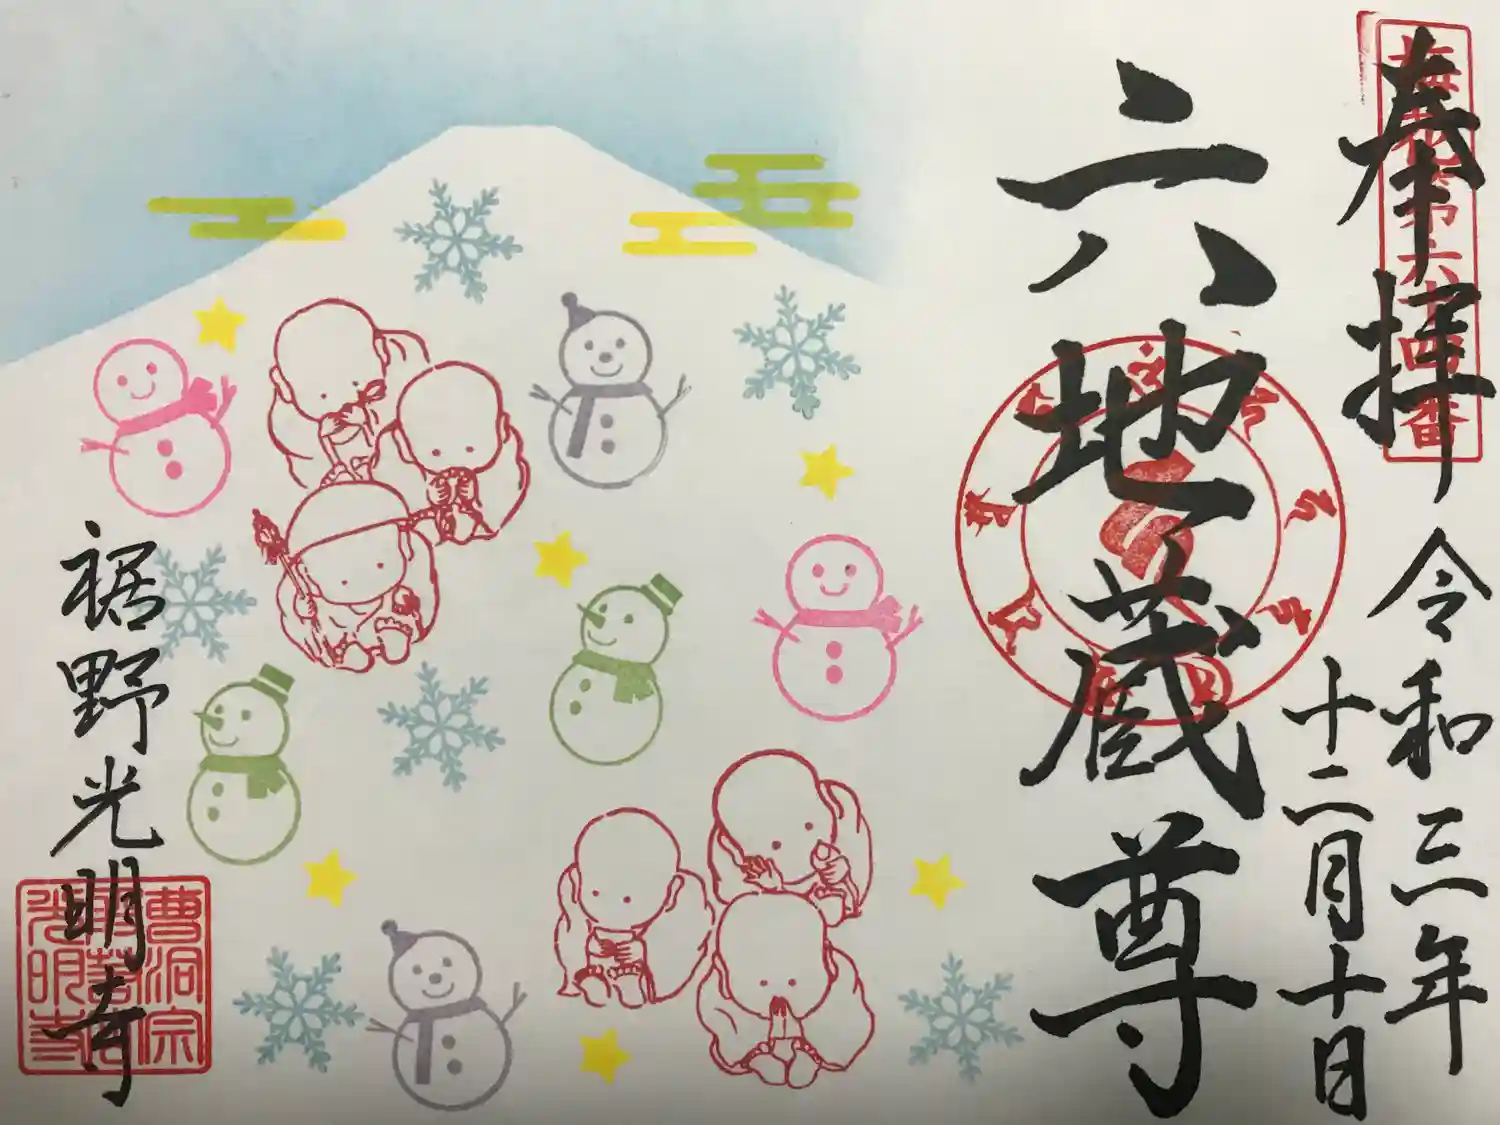 奉拝
令和三年
十二月十日
六地蔵尊
裾野光明寺
曹洞宗
光明寺